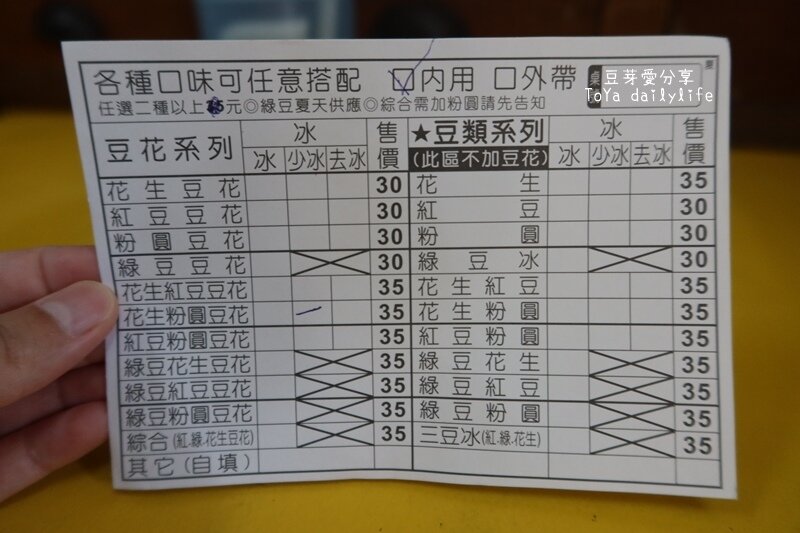 各種口味可任意搭配 ☑內用 口外帶 桌
豆芽愛分享
ToYa dailylife
任選二種以上35元◎綠豆夏天供應◎綜合需加粉圓請先告知
豆花系列 冰 售價 ★豆類系列 冰 售價
冰 少冰 去冰 (此區不加豆花) 冰 少冰 去冰
花生豆花 30 花生 35
紅豆豆花 30 紅豆 30
粉圓豆花 30 粉圓 30
綠豆豆花 30 綠豆冰 30
花生紅豆豆花 35 花生紅豆 35
花生粉圓豆花 35 花生粉圓 35
紅豆粉圓豆花 35 紅豆粉圓 35
綠豆花生豆花 35 綠豆花生 35
綠豆紅豆豆花 35 綠豆紅豆 35
綠豆粉圓豆花 35 綠豆粉圓 35
綜合(紅.綠.花生豆花) 35 三豆冰(紅.綠.花生) 35
其它(自填)